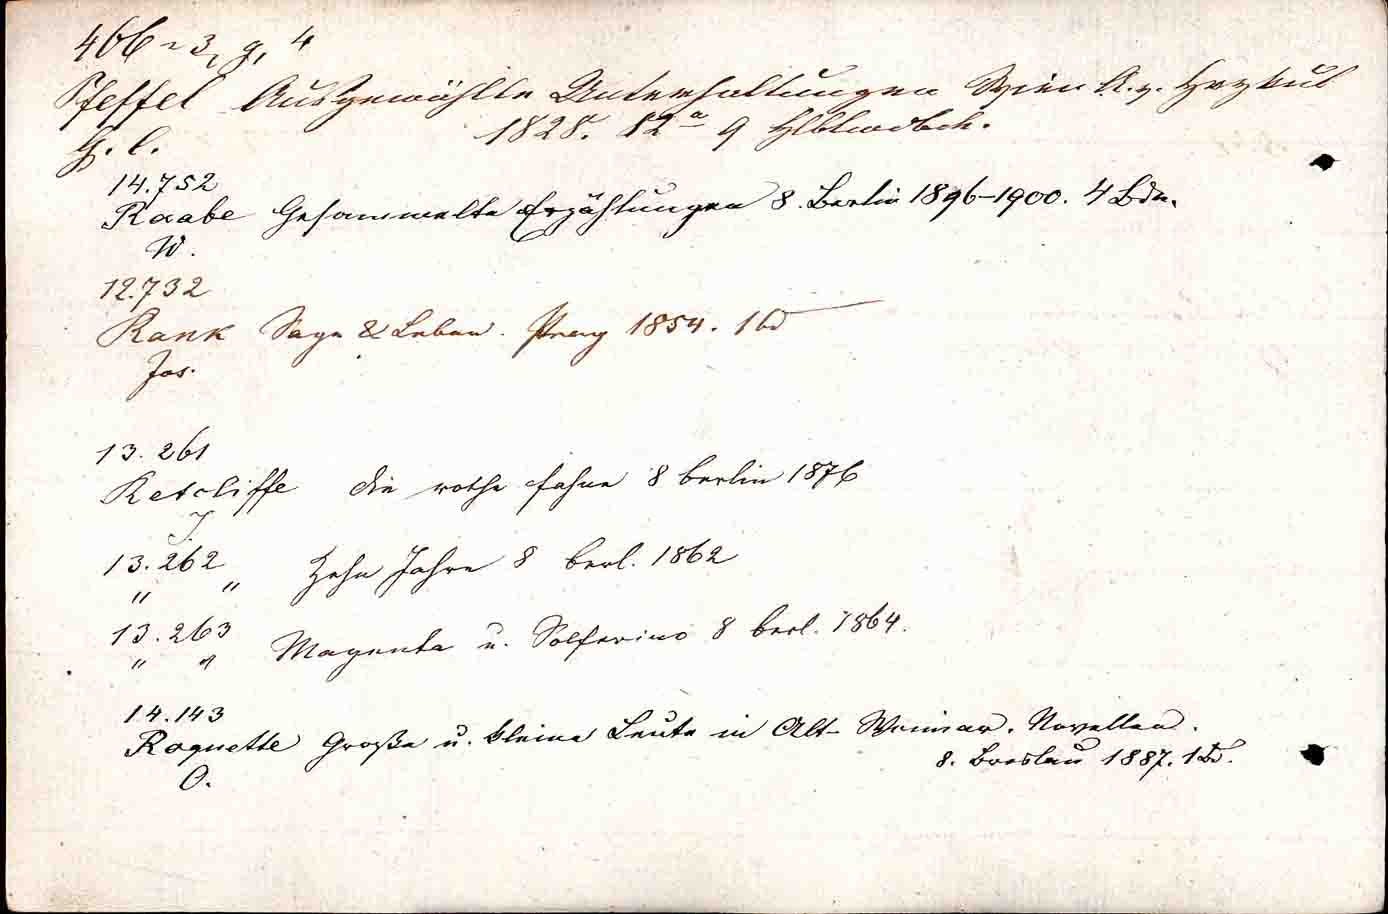 466-3, g, 4
Pfeffel Ausgewählte Unterhaltungen Wien A. v. Haykul
G. C. 1828. 12° 9 Hlblwdbde.
14.752
Raabe Gesammelte Erzählungen 8. Berlin 1896-1900. 4 Bde.
W.
12.732
Rank Sage & Leben. Prag 1854. 1 bd
Jos.
13.261
Retcliffe die rothe fahne 8 berlin 1876
J.
13.262 Zehn Jahre 8 berl. 1862
" "
13.263 Magenta u. Solferino 8 berl. 1864.
" "
14.143
Roquette Große u. kleine Leute in Alt-Weimar. Novellen.
O. 8. Breslau 1887. 1 Bd.